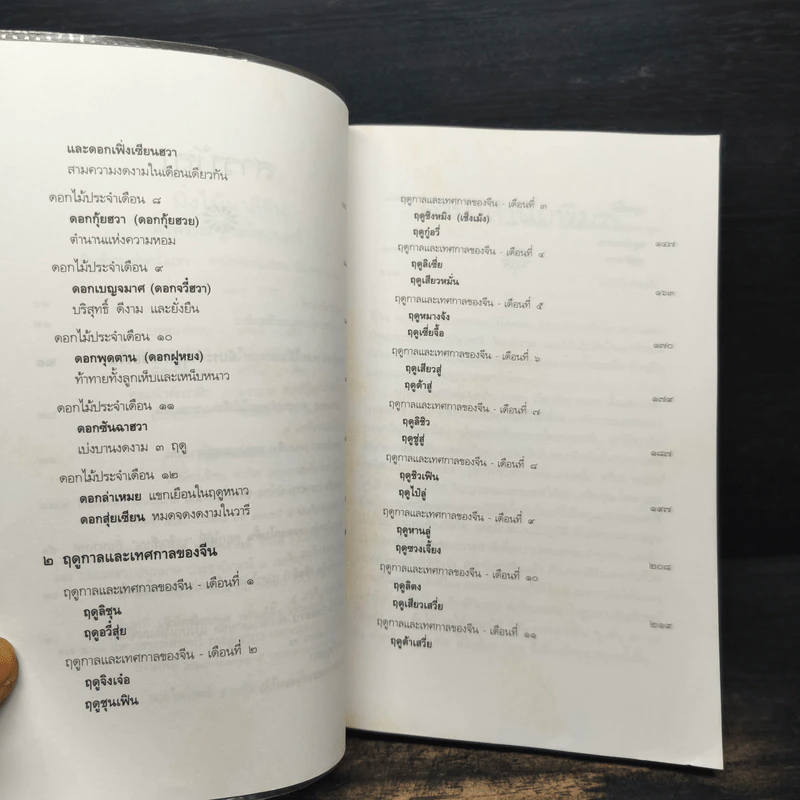 และดอกเฟิ่งเซียนฮวา
สามความงดงามในเดือนเดียวกัน
ดอกไม้ประจำเดือน ๘
ดอกกุ้ยฮวา (ดอกกุ้ยฮวย)
ตำนานแห่งความหอม
ดอกไม้ประจำเดือน ๙
ดอกเบญจมาศ (ดอกจวี๋ฮวา)
บริสุทธิ์ ดีงาม และยั่งยืน
ดอกไม้ประจำเดือน ๑๐
ดอกพุดตาน (ดอกฝูหยง)
ท้าทายทั้งลูกเห็บและเหน็บหนาว
ดอกไม้ประจำเดือน ๑๑
ดอกซันฉาฮวา
เบ่งบานงดงาม ๓ ฤดู
ดอกไม้ประจำเดือน ๑๒
ดอกล่าเหมย แขกเยือนในฤดูหนาว
ดอกสุ่ยเซียน หมดจดงดงามในวารี
๒ ฤดูกาลและเทศกาลของจีน
ฤดูกาลและเทศกาลของจีน - เดือนที่ ๑
ฤดูลิชุน
ฤดูอวี๋สุ่ย
ฤดูกาลและเทศกาลของจีน - เดือนที่ ๒
ฤดูจิงเจ๋อ
ฤดูชุนเฟิน
ฤดูกาลและเทศกาลของจีน - เดือนที่ ๓
ฤดูชิงหมิง (เช็งเม้ง)
ฤดูกู๋อวี่
ฤดูกาลและเทศกาลของจีน - เดือนที่ ๔ ๑๔๗
ฤดูลิเซี่ย
ฤดูเสียวหมั่น
ฤดูกาลและเทศกาลของจีน - เดือนที่ ๕ ๑๖๓
ฤดูหมางจัง
ฤดูเซี่ยจื้อ
ฤดูกาลและเทศกาลของจีน - เดือนที่ ๖ ๑๗๐
ฤดูเสียวสู่
ฤดูต้าสู่
ฤดูกาลและเทศกาลของจีน - เดือนที่ ๗ ๑๗๙
ฤดูลิชิว
ฤดูชู่สู่
ฤดูกาลและเทศกาลของจีน - เดือนที่ ๘ ๑๘๗
ฤดูชิวเฟิน
ฤดูไป๋ลู่
ฤดูกาลและเทศกาลของจีน - เดือนที่ ๙ ๑๙๗
ฤดูหานลู่
ฤดูซวงเจี้ยง
ฤดูกาลและเทศกาลของจีน - เดือนที่ ๑๐ ๒๐๘
ฤดูลิตง
ฤดูเสียวเสวี่ย
ฤดูกาลและเทศกาลของจีน - เดือนที่ ๑๑ ๒๑๙
ฤดูต้าเสวี่ย